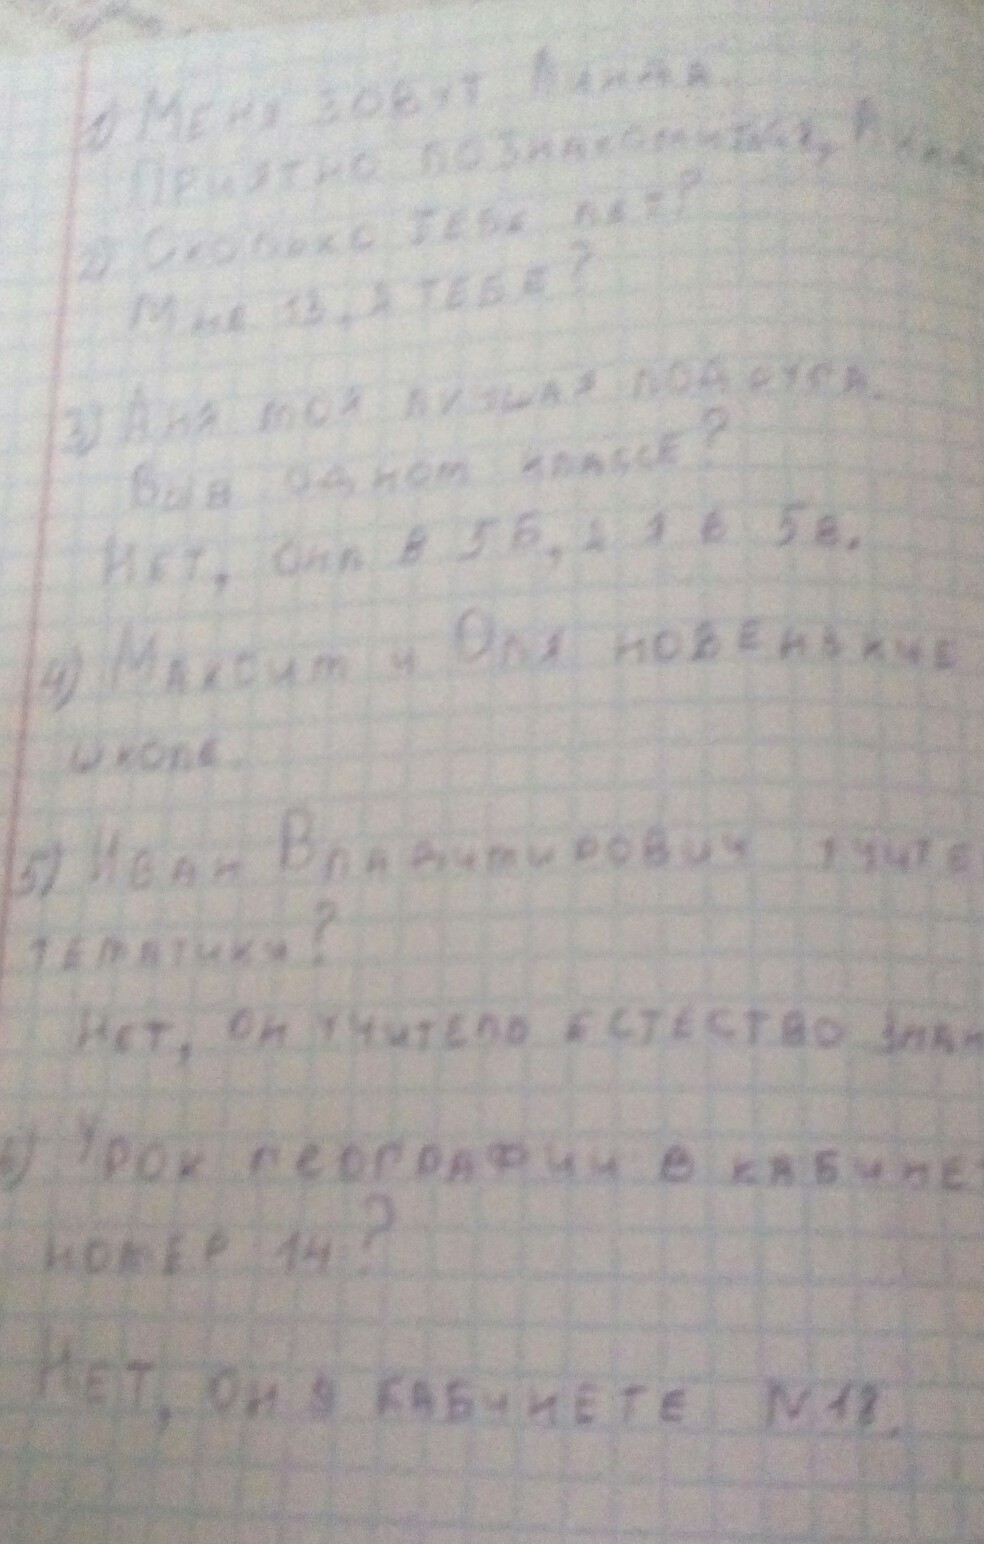 1) Меня зовут
Приятно познакомиться,
2) Сколько тебе лет?
Мне 13, а тебе?
3) Аня моя лучшая подруга.
Вы в одном классе?
Нет, она в 5Б, а я в 5в.
4) Максим и Оля новенькие
школе.
5) Иван Владимирович учите
тематики?
Нет, он учитель естество знан
6) Урок географии в кабинет
номер 14?
Нет, он в кабинете N 18.